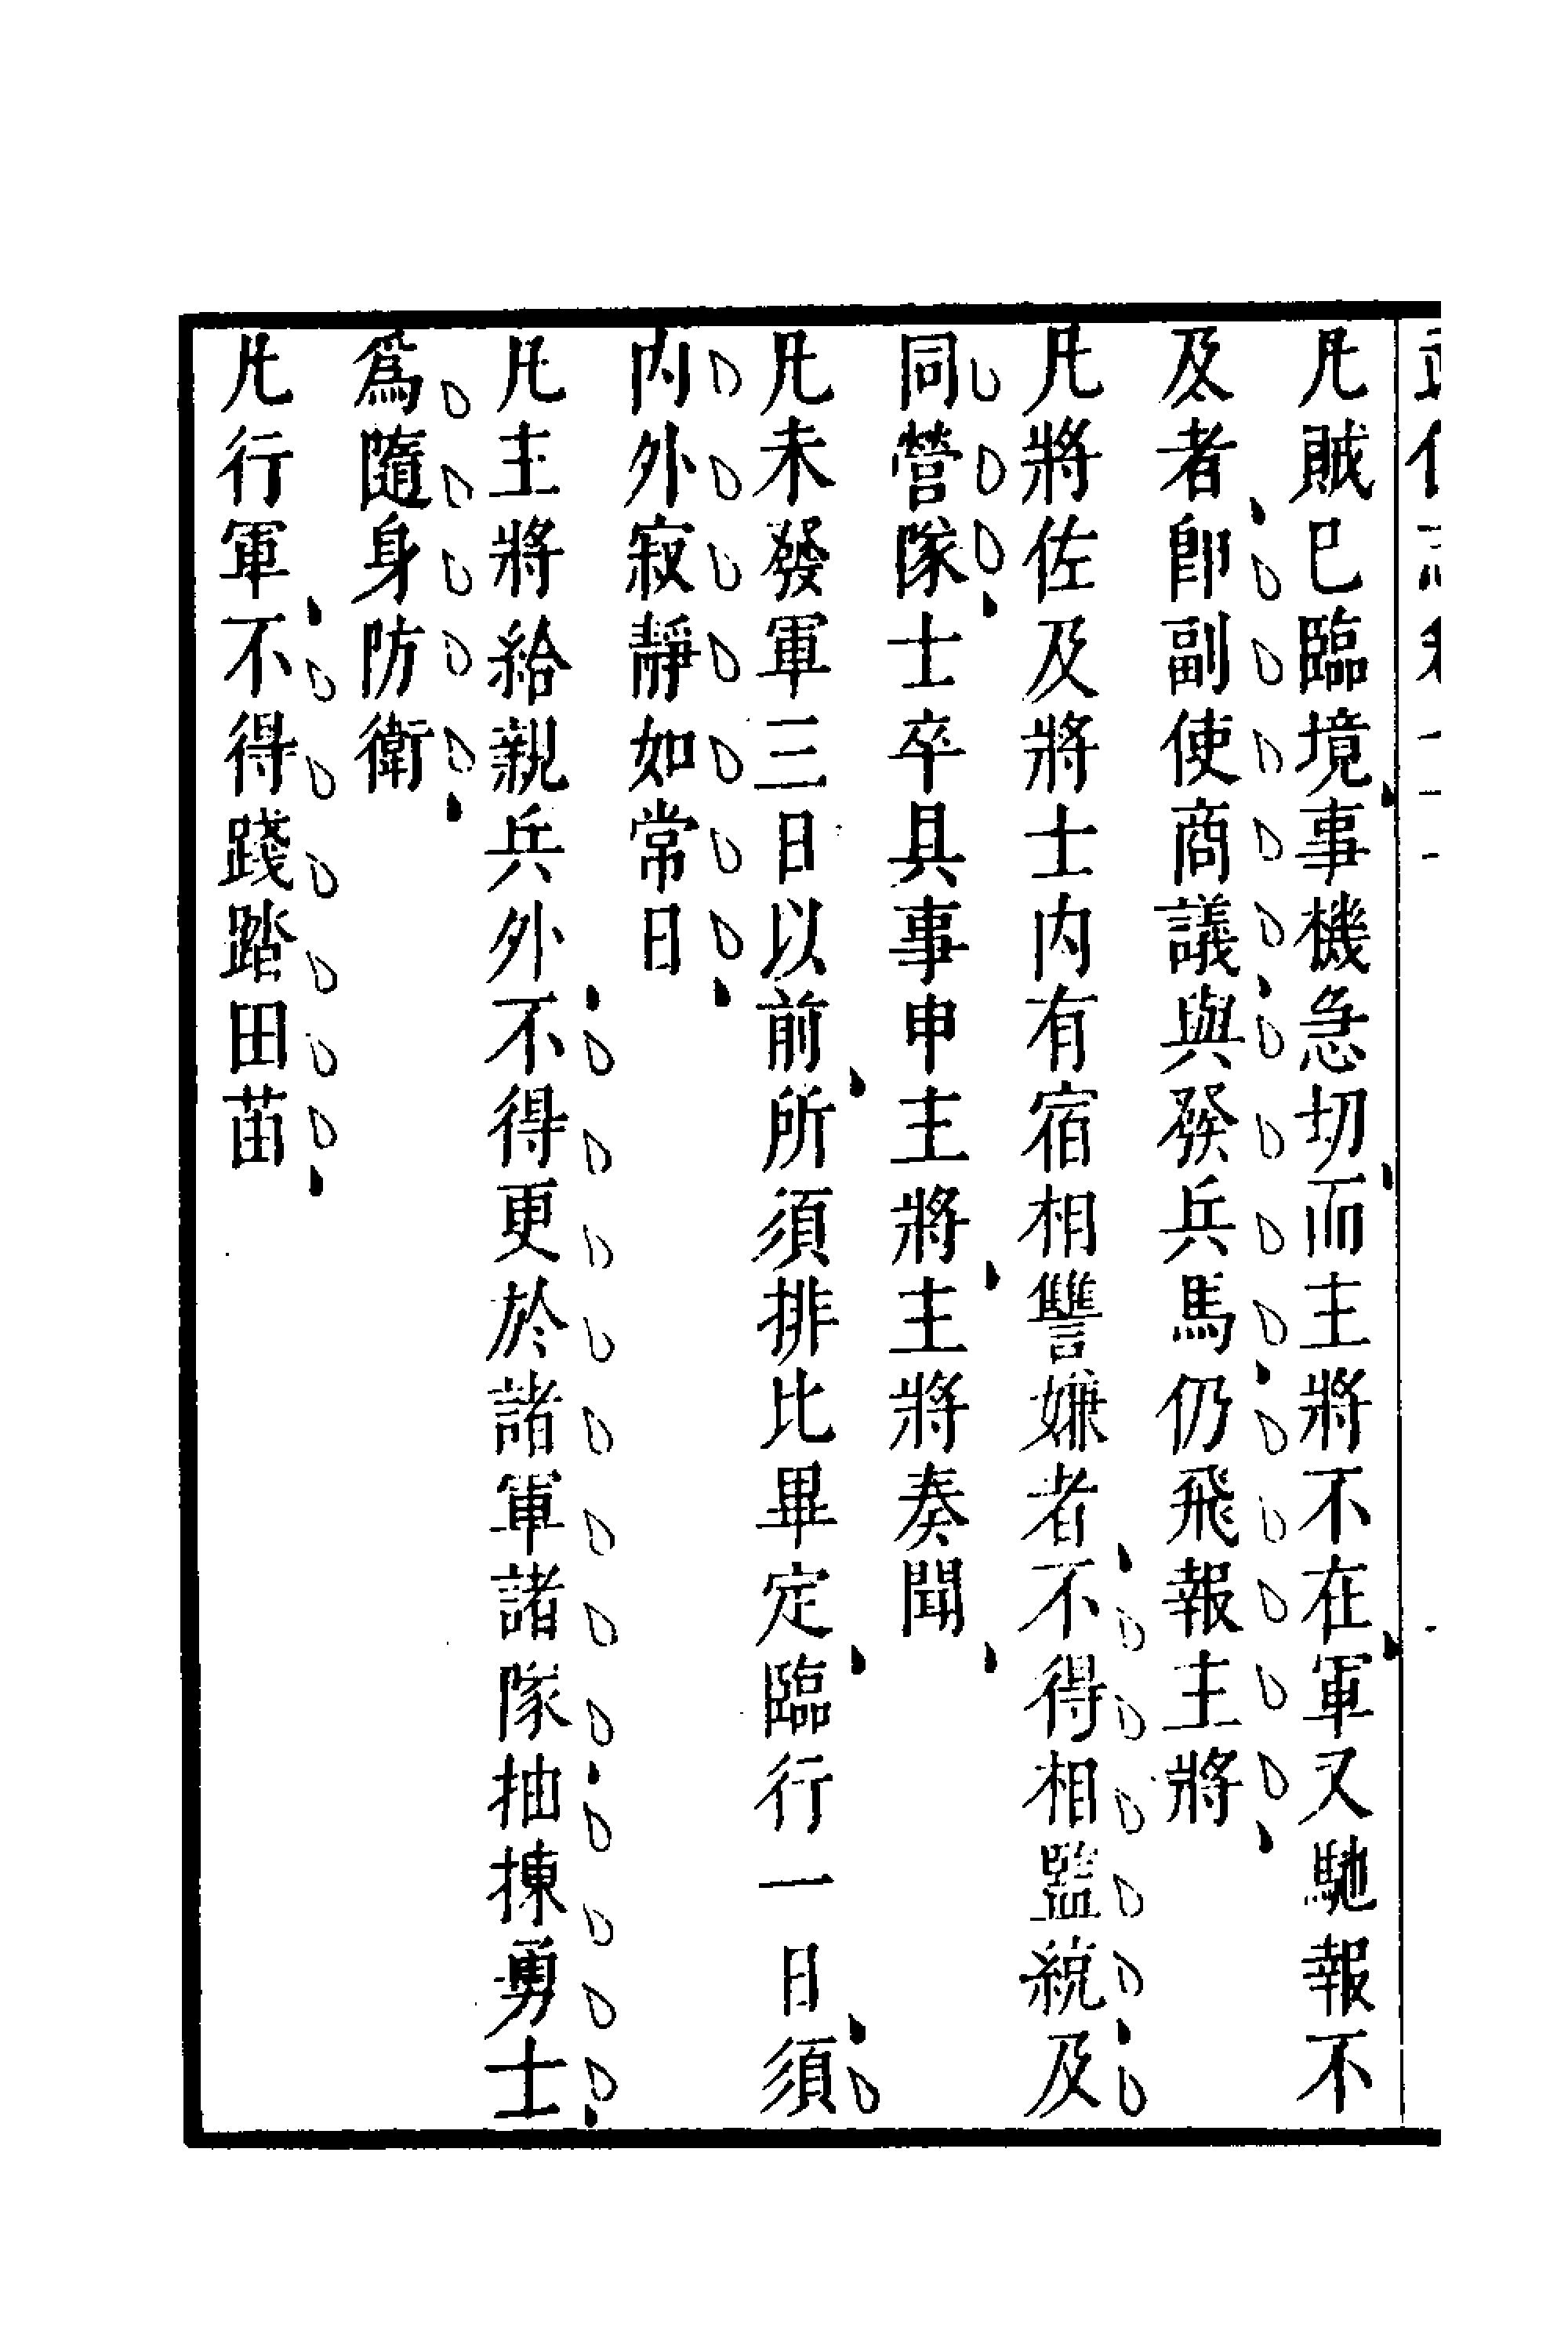 凡賊已臨境事機急切而主將不在軍又馳報不
及者卽副使商議與發兵馬仍飛報主將
凡將佐及將士内有宿相讐嫌者不得相監統及
同營隊士卒具事申主將主將奏聞
凡未發軍三日以前所須排比畢定臨行一日須
内外寂靜如常日
凡主將給親兵外不得更於諸軍諸隊抽揀勇士
爲隨身防衛
凡行軍不得踐踏田苗